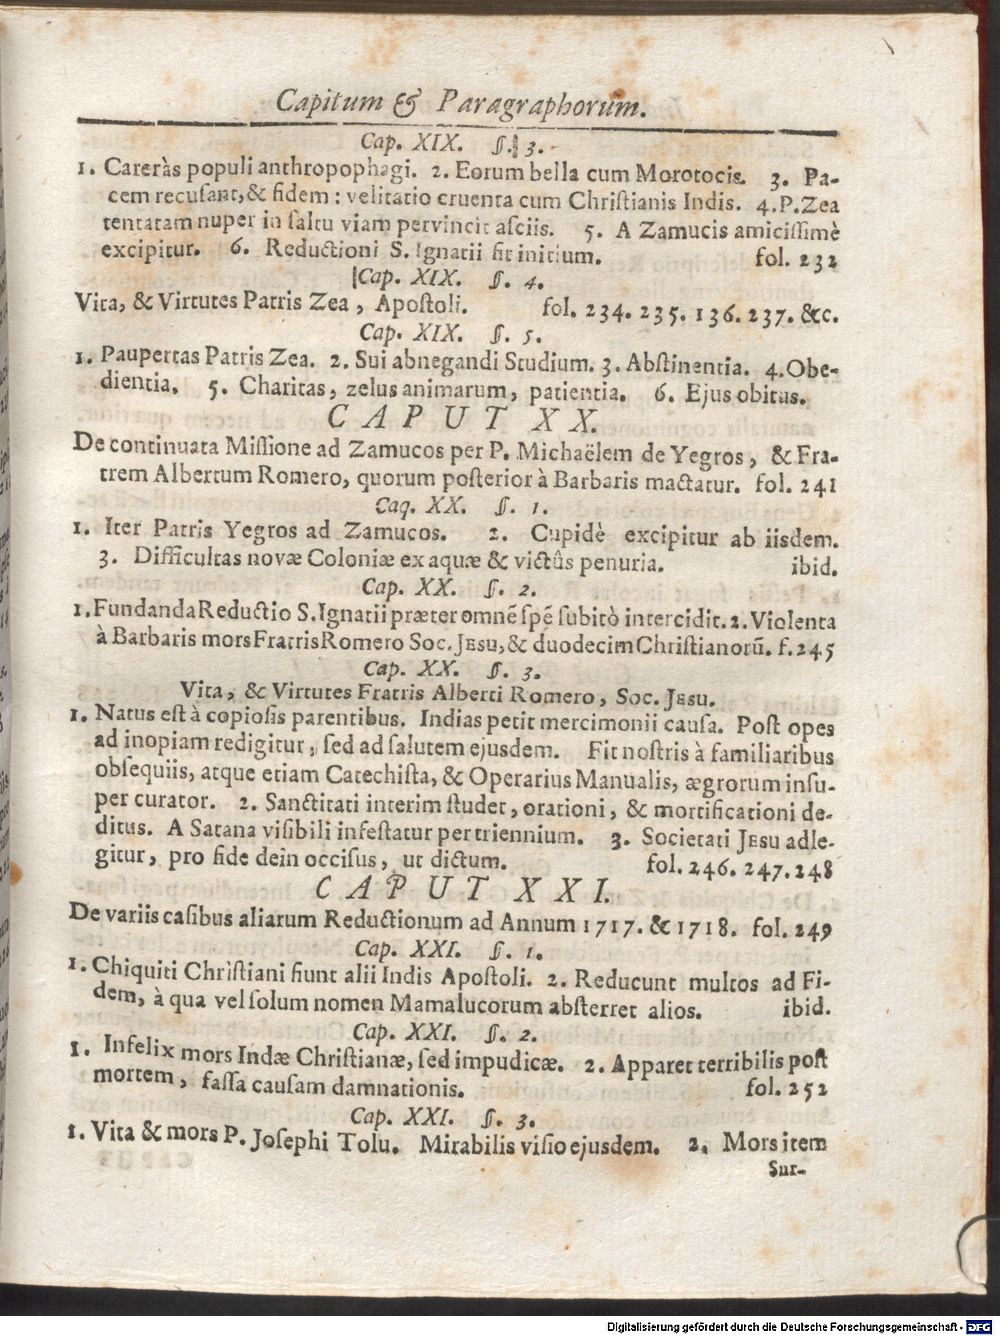 Capitum & Paragraphorum.
Cap. XIX. §. 3.
1. Careràs populi anthropophagi. 2. Eorum bella cum Morotocis. 3. Pa-
cem recuſant, & fidem : velitatio cruenta cum Chriſtianis Indis. 4. P. Zea
tentatam nuper in ſaltu viam pervincit aſciis. 5. A Zamucis amiciſſimè
excipitur. 6. Reductioni S. Ignatii fit initium. fol. 232
Cap. XIX. §. 4.
Vita, & Virtutes Patris Zea, Apoſtoli. fol. 234. 235. 136. 237. &c.
Cap. XIX. §. 5.
1. Paupertas Patris Zea. 2. Sui abnegandi Studium. 3. Abſtinentia. 4. Obe-
dientia. 5. Charitas, zelus animarum, patientia. 6. Ejus obitus.
CAPUT XX.
De continuata Miſſione ad Zamucos per P. Michaëlem de Yegros, & Fra-
trem Albertum Romero, quorum poſterior à Barbaris mactatur. fol. 241
Caq. XX. §. 1.
1. Iter Patris Yegros ad Zamucos. 2. Cupidè excipitur ab iisdem.
3. Difficultas novæ Coloniæ ex aquæ & victûs penuria. ibid.
Cap. XX. §. 2.
1. Fundanda Reductio S. Ignatii præter omnē ſpē ſubitò intercidit. 2. Violenta
à Barbaris mors Fratris Romero Soc. JESU, & duodecim Chriſtianorū. f. 245
Cap. XX. §. 3.
Vita, & Virtutes Fratris Alberti Romero, Soc. JESU.
1. Natus eſt à copioſis parentibus. Indias petit mercimonii cauſa. Poſt opes
ad inopiam redigitur, ſed ad ſalutem ejusdem. Fit noſtris à familiaribus
obſequiis, atque etiam Catechiſta, & Operarius Manualis, ægrorum inſu-
per curator. 2. Sanctitati interim ſtudet, orationi, & mortificationi de-
ditus. A Satana viſibili infeſtatur per triennium. 3. Societati JESU adle-
gitur, pro fide dein occiſus, ut dictum. fol. 246. 247. 248
CAPUT XXI.
De variis caſibus aliarum Reductionum ad Annum 1717. & 1718. fol. 249
Cap. XXI. §. 1.
1. Chiquiti Chriſtiani fiunt alii Indis Apoſtoli. 2. Reducunt multos ad Fi-
dem, à qua vel ſolum nomen Mamalucorum abſterret alios. ibid.
Cap. XXI. §. 2.
1. Infelix mors Indæ Chriſtianæ, ſed impudicæ. 2. Apparet terribilis poſt
mortem, faſſa cauſam damnationis. fol. 252
Cap. XXI. §. 3.
1. Vita & mors P. Joſephi Tolu. Mirabilis viſio ejusdem. 2. Mors item
Sur-
Digitalisierung gefördert durch die Deutsche Forschungsgemeinschaft - DFG